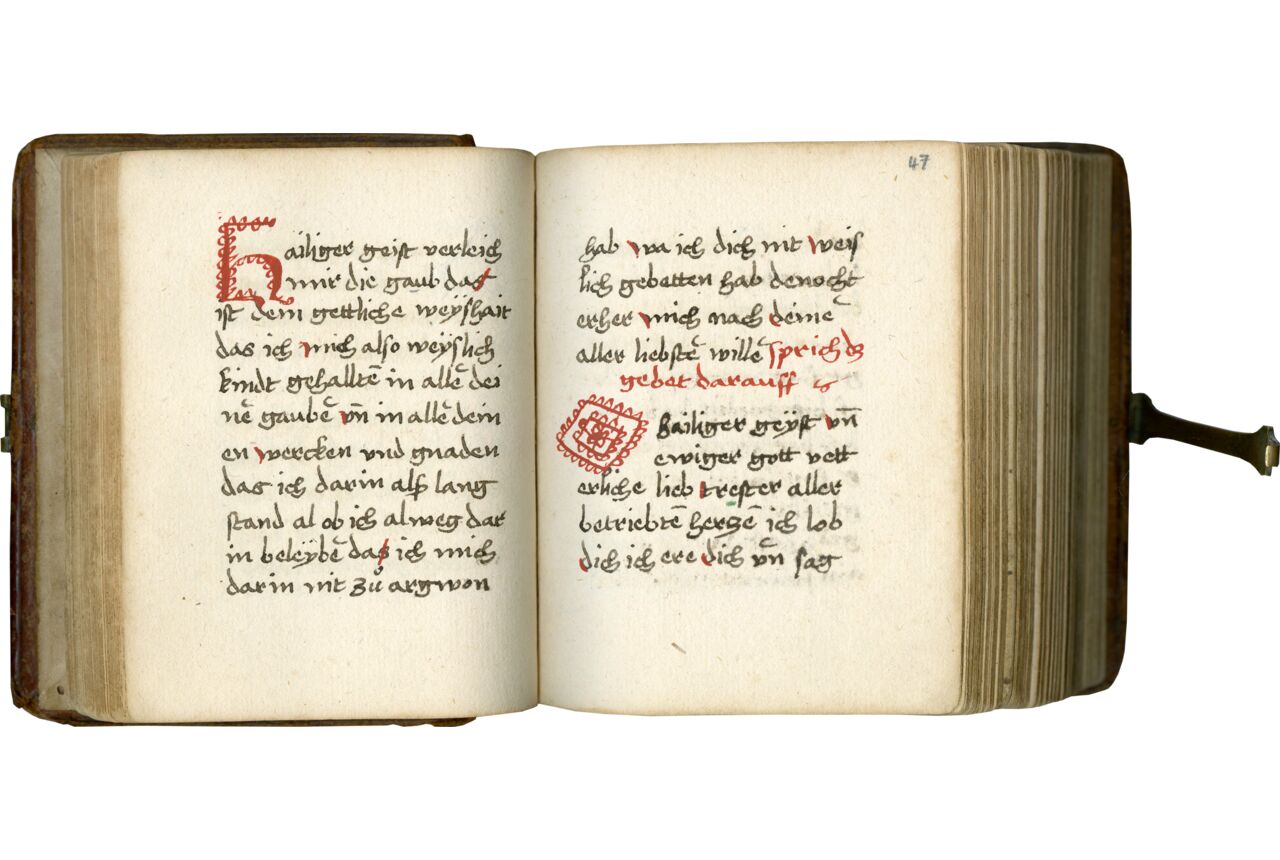 Hailiger geist verleich
mir die gaub das
ist dein gettliche weÿshait
das ich mich also weÿslich
kindt gehalltē in allē dei
nē gaubē vn̄ in allē dein
en wercken vnd gnaden
das ich darin alß lang
stand al ob ich alweg dar
in beleÿbē das ich mich
darin nit zů argwon
47
hab wa ich dich nit weis
lich gebetten hab denocht
erher mich nach deinē
aller liebstē willē sprich dz
gebet darauff
O hailiger geÿst vn̄
ewiger gott vett
erliche lieb trester aller
betriebtē herzē ich lob
dich ich ere dich vn̄ sag